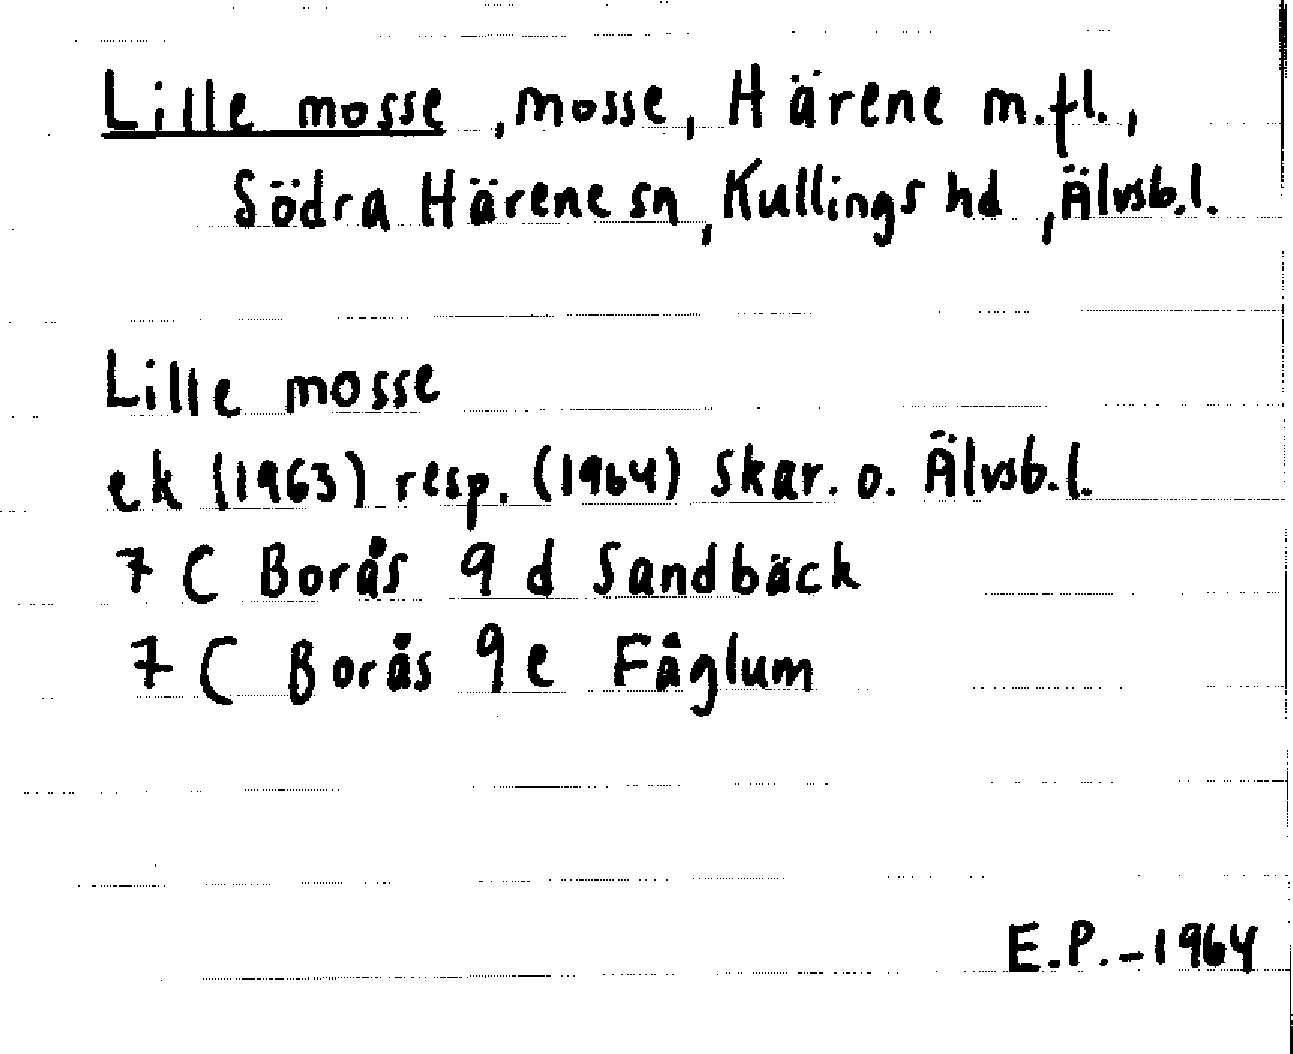 Lille mosse, mosse, Härene m.fl.,
Södra Härene sn, Kullings hd, Älvsb.l.
Lille mosse
ek (1963) resp. (1964) Skar. o. Älvsb.l.
7 C Borås 9 d Sandbäck
7 C Borås 9 e Fåglum
E.P.-1964